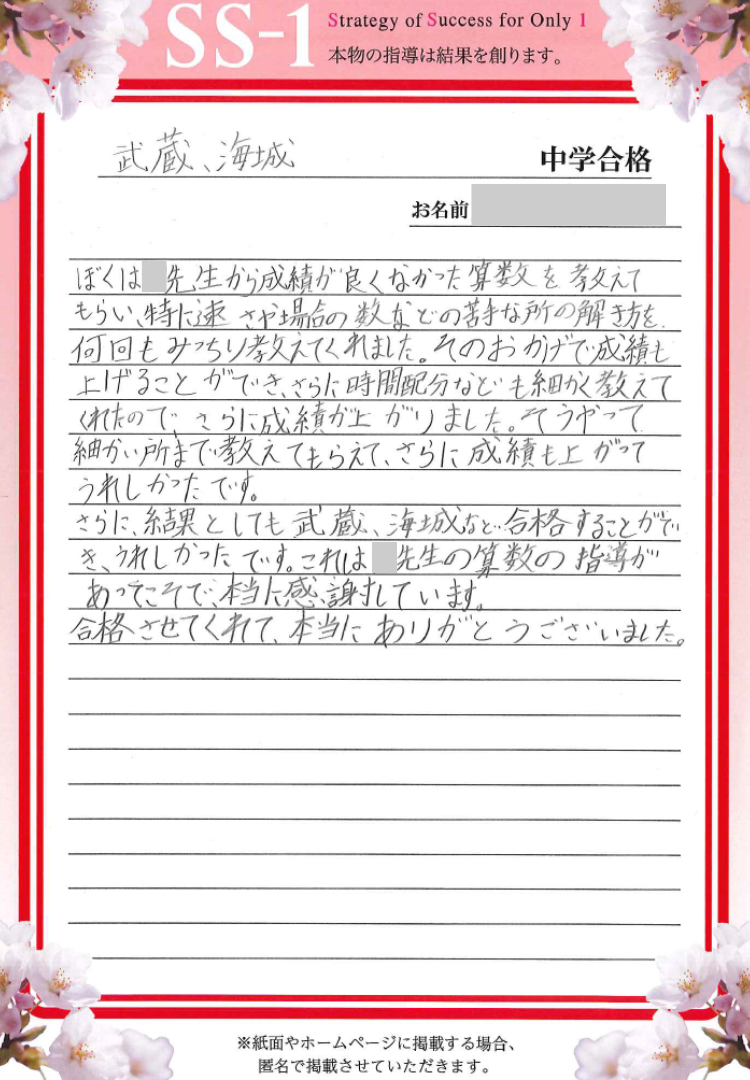 SS-1
Strategy of Success for Only 1
本物の指導は結果を創ります。
武蔵、海城
中学合格
お名前
ぼくは 先生から成績が良くなかった算数を教えて
もらい、特に速さや場合の数などの苦手な所の解き方を
何回もみっちり教えてくれました。そのおかげで成績も
上げることができ、さらに時間配分なども細かく教えて
くれたので、さらに成績が上がりました。そうやって
細かい所まで教えてもらえて、さらに成績も上がって
うれしかったです。
さらに、結果としても武蔵、海城など合格することがで
き、うれしかったです。これは 先生の算数の指導が
あってこそで、本当に感謝しています。
合格させてくれて、本当にありがとうございました。
※紙面やホームページに掲載する場合、
匿名で掲載させていただきます。